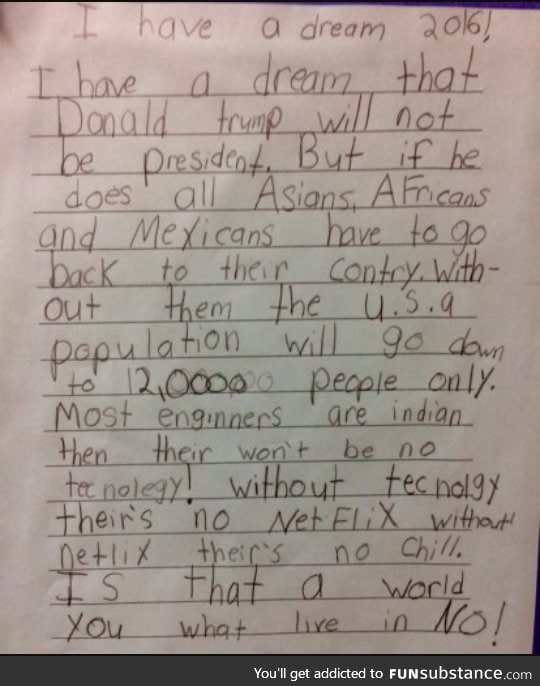 I have a dream 2016!
I have a dream that
Donald trump will not
be president. But if he
does all Asians, AFricans
and Mexicans have to go
back to their contry. With-
out them the U.S.a
population will go down
to 12,00000 people only.
Most enginners are indian
then their won't be no
tecnolegy! without tecnolgy
their's no NetFliX without
netlix their's no Chill.
IS that a world
you what live in NO!
You'll get addicted to FUNsubstance.com